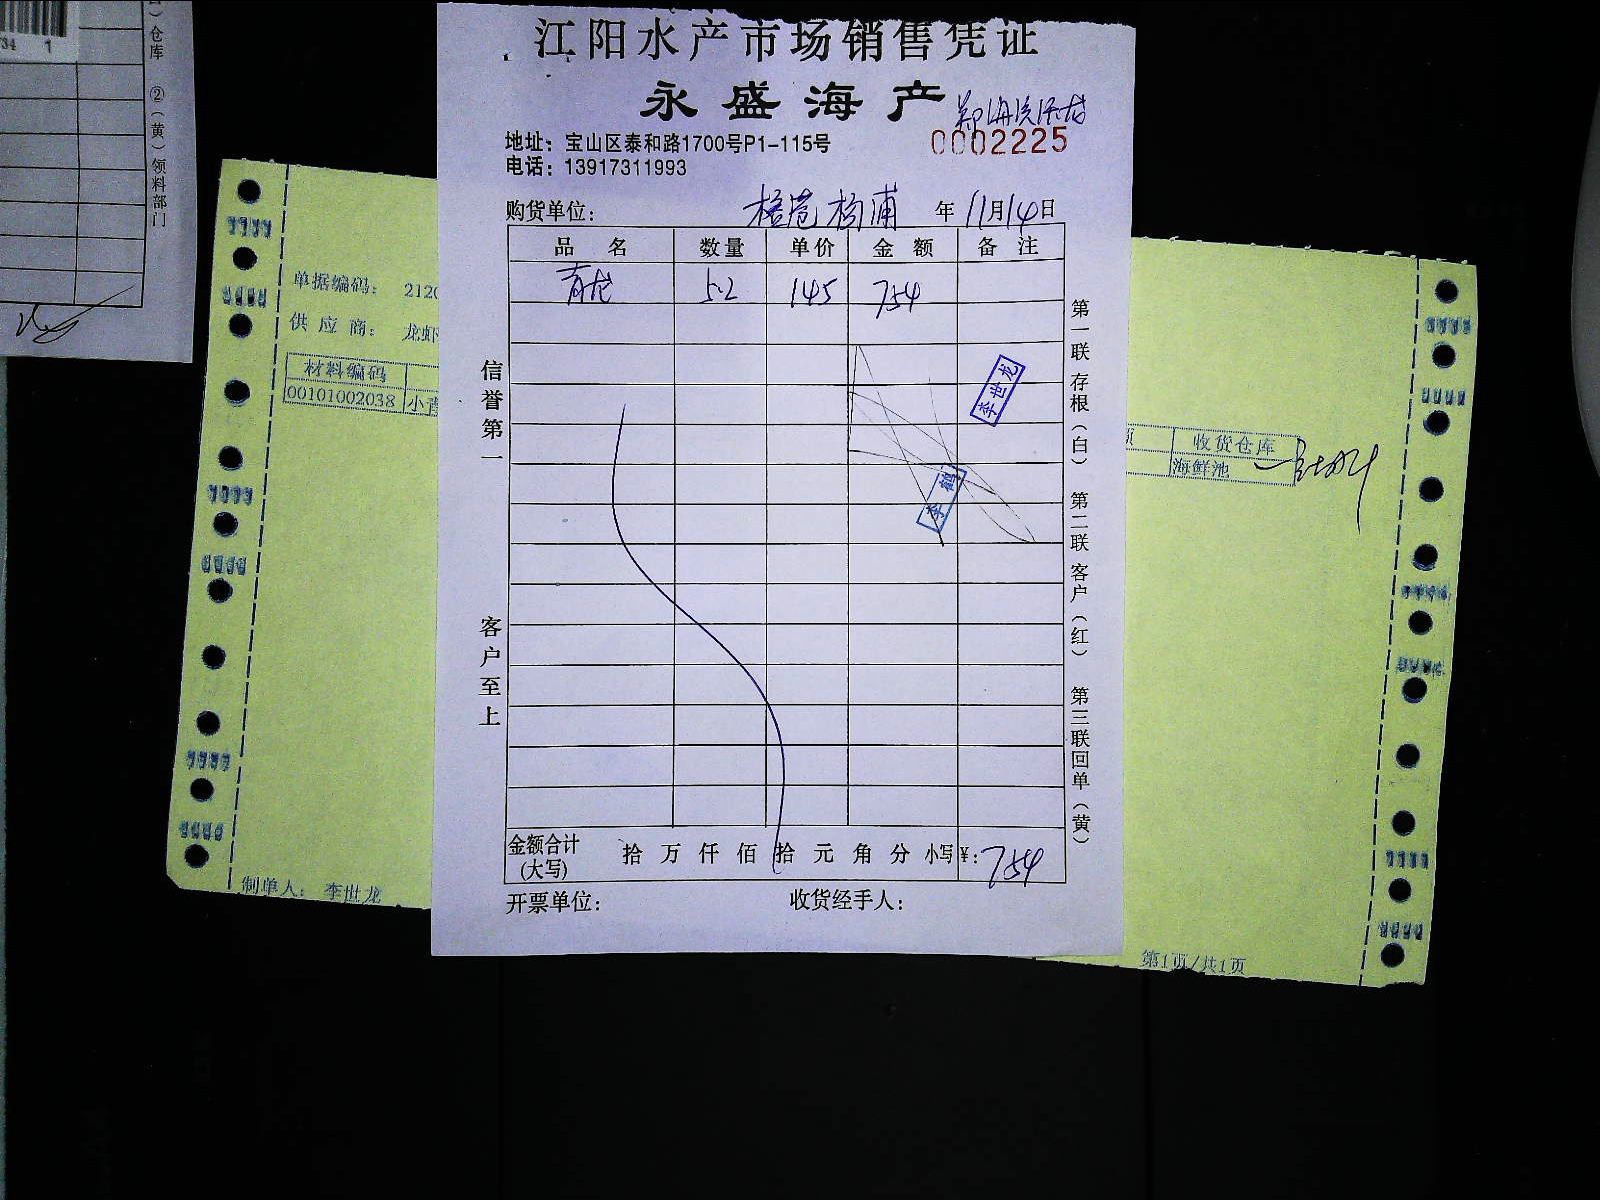 江阳水产市场销售凭证
永盛海产
地址：宝山区泰和路1700号P1-115号
0002225
电话：13917311993
购货单位： 杨浦 年11月14日
品名 数量 单价 金额 备注
青龙 5.2 145 754
李世龙
李鹤
信誉第一
客户至上
第一联存根（白） 第二联客户（红） 第三联回单（黄）
金额合计(大写) 拾万仟佰拾元角分 小写¥：754
开票单位： 收货经手人：
单据编码： 212
供应商： 龙虾
材料编码
00101002038 小青
制单人： 李世龙
收货仓库
海鲜池
第1页/共1页
仓库 ②（黄）领料部门
34 1